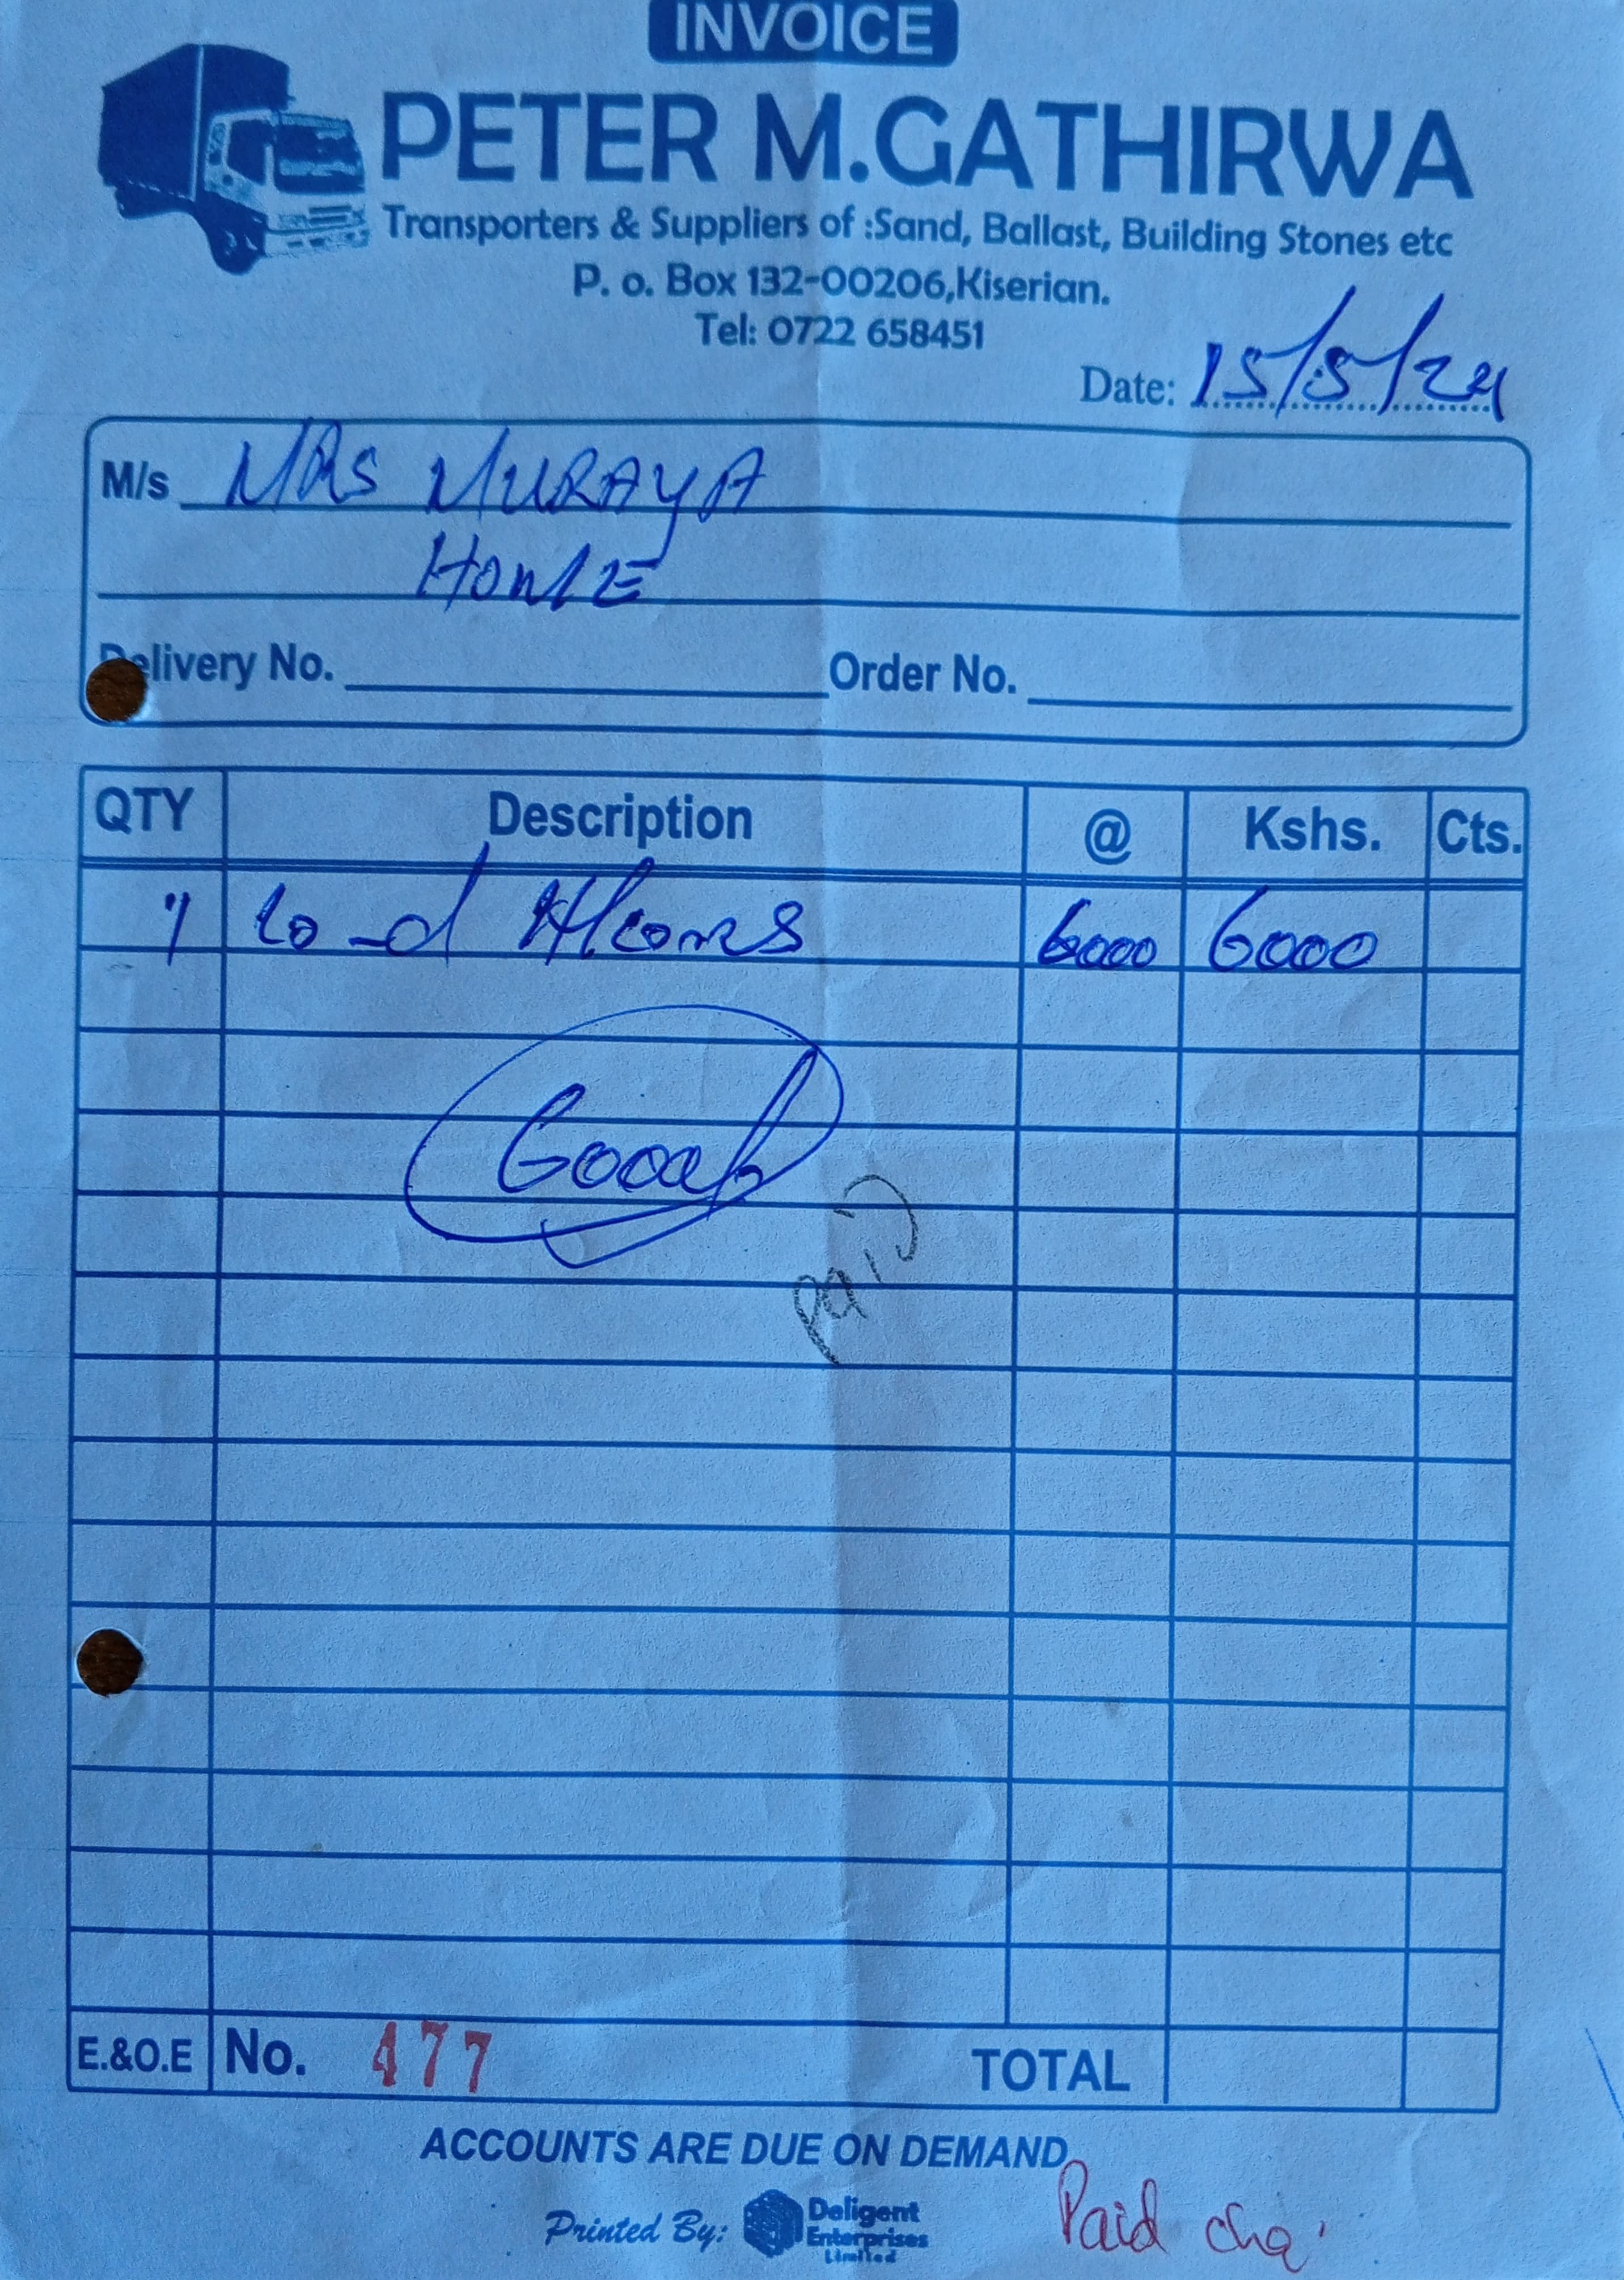 INVOICE
PETER M.GATHIRWA
Transporters & Suppliers of :Sand, Ballast, Building Stones etc
P. o. Box 132-00206,Kiserian.
Tel: 0722 658451
Date: 15/5/24
M/s MRS MURAYA
HOME
Delivery No. Order No.
QTY Description @ Kshs. Cts.
6000 6000
PaiD
E.&O.E No. 477 TOTAL
ACCOUNTS ARE DUE ON DEMAND
Paid
Printed By: Deligent
Enterprises
Limited